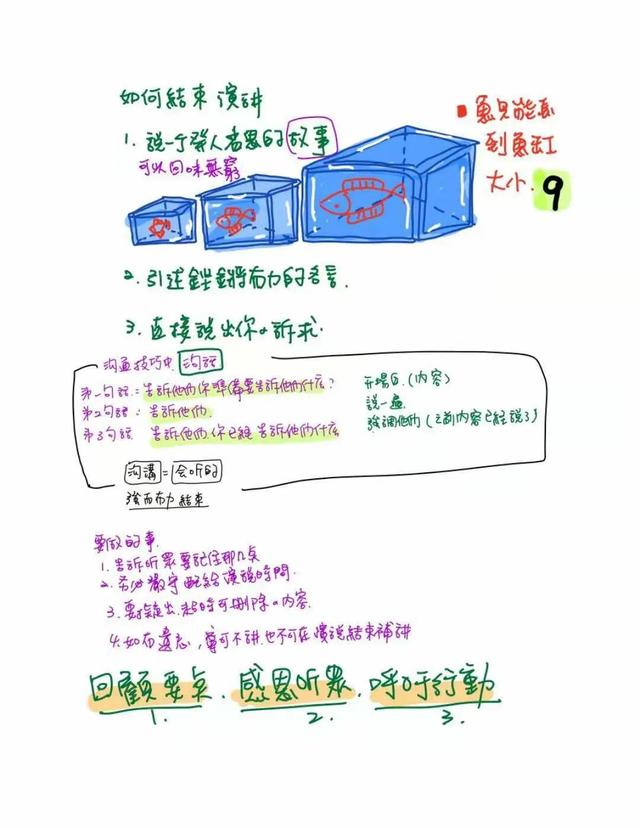 如何結束演講
1. 說一个發人省思的故事
可以回味無窮
■ 魚只能長
到魚缸
大小.
9
2. 引述鏗鏘有力的名言.
3. 直接說出你の訴求.
溝通技巧中 溝話
第一句話:告訴他們你準備要告訴他們什么? 開場白.(内容)
第2句話:告訴他們. 說一遍.
第3句話 告訴他們.你已經告訴他們什么 強調他們(之前内容已經說3)
溝講=会听的
強而有力結束
要做的事.
1. 告訴听眾要記住那几点
2. 务必嚴守配給演說時間.
3. 要找出.超時可刪除の内容.
4. 如有遺忘,寧可不講.也不可在演說結束補講
回顧要点.感恩听眾.呼吁行動
1. 2. 3.